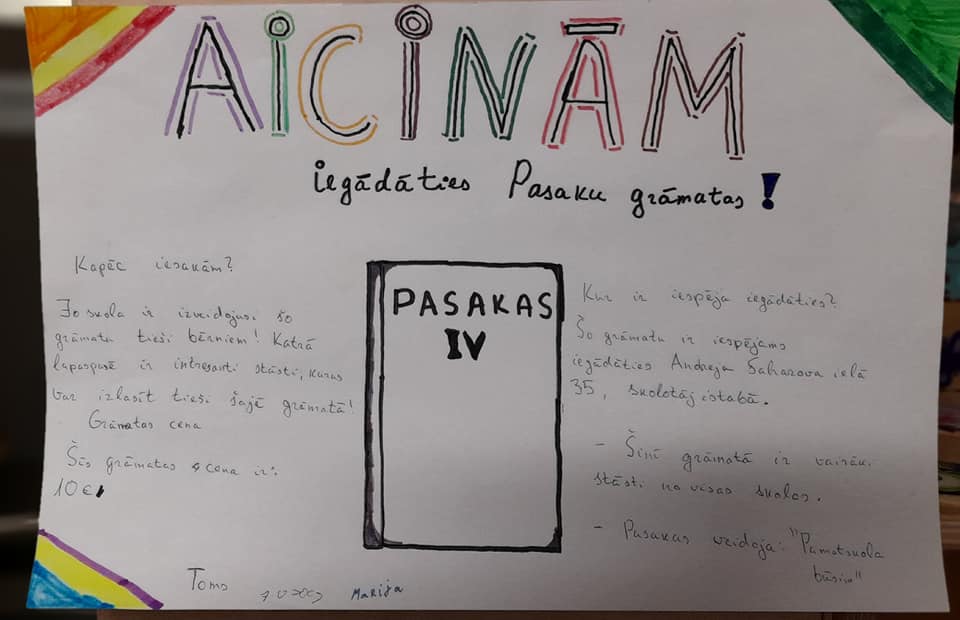 AICINĀM
iegādāties Pasaku grāmatas!
Kapēc iesakām?
Jo skola ir izveidojusi šo
grāmatu tieši bērniem! Katrā
lapaspusē ir intresanti stāsti, kuras
var izlasīt tieši šajē grāmatā!
Grāmatas cena
Šīs grāmatas cena ir:
10€
PASAKAS
IV
Kur ir iespēja iegādāties?
Šo grāmatu ir iespējams
iegādāties Andreja Saharova ielā
35, skolotāj istabā.
- Šinī grāmatā ir vairāki
stāsti no visas skolas.
- Pasakas veidoja: "Pamatskola
Toms
Marija